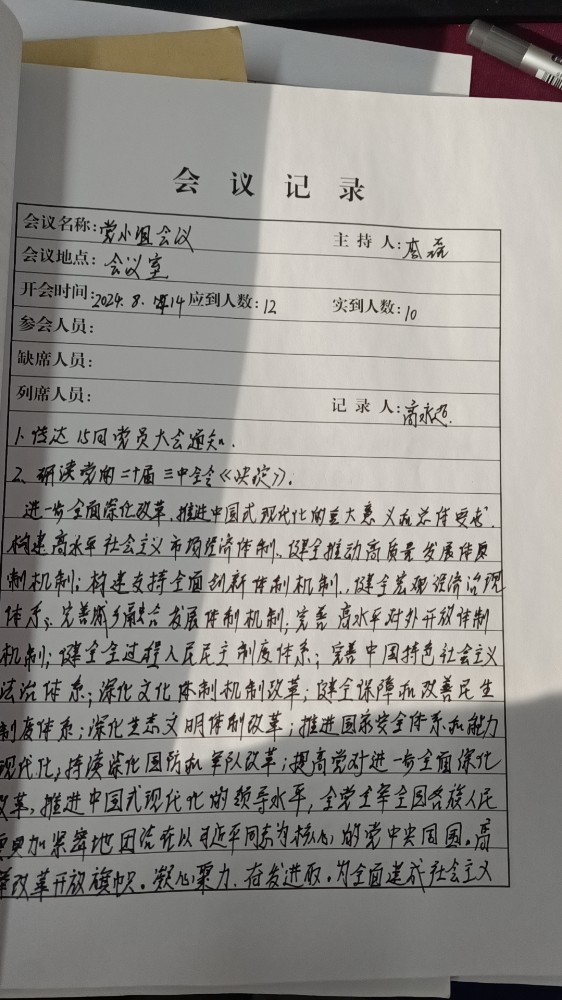 会议记录
会议名称:党小组会议 主持人:李磊
会议地点:会议室
开会时间:2024.8.14 应到人数:12 实到人数:10
参会人员:
缺席人员:
列席人员: 记录人:高永超.
1、传达 15日党员大会通知.
2、研读党的二十届三中全会《决定》.
进一步全面深化改革,推进中国式现代化的重大意义和总体要求.
构建高水平社会主义市场经济体制、健全推动高质量发展体
制机制;构建支持全面创新体制机制、健全宏观经济治理
体系;完善城乡融合发展体制机制;完善高水平对外开放体制
机制;健全全过程人民民主制度体系;完善中国特色社会主义
法治体系;深化文化体制机制改革;健全保障和改善民生
制度体系;深化生态文明体制改革;推进国家安全体系和能力
现代化,持续深化国防和军队改革;提高党对进一步全面深化
改革,推进中国式现代化的领导水平,全党全军全国各族人民
更加紧密地团结在以习近平同志为核心的党中央周围。高
举改革开放旗帜。凝心聚力.奋发进取.为全面建成社会主义